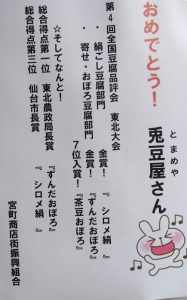 おめでとう！
とまめや
兎豆屋さん
第４回全国豆腐品評会　東北大会
・絹ごし豆腐部門　金賞！『シロメ絹』
・寄せ・おぼろ豆腐部門　金賞！『ずんだおぼろ』
７位入賞！『茶豆おぼろ』
☆そしてなんと！
総合得点第一位　東北農政局長賞　『ずんだおぼろ』
総合得点第三位　仙台市長賞　『シロメ絹』
宮町商店街振興組合